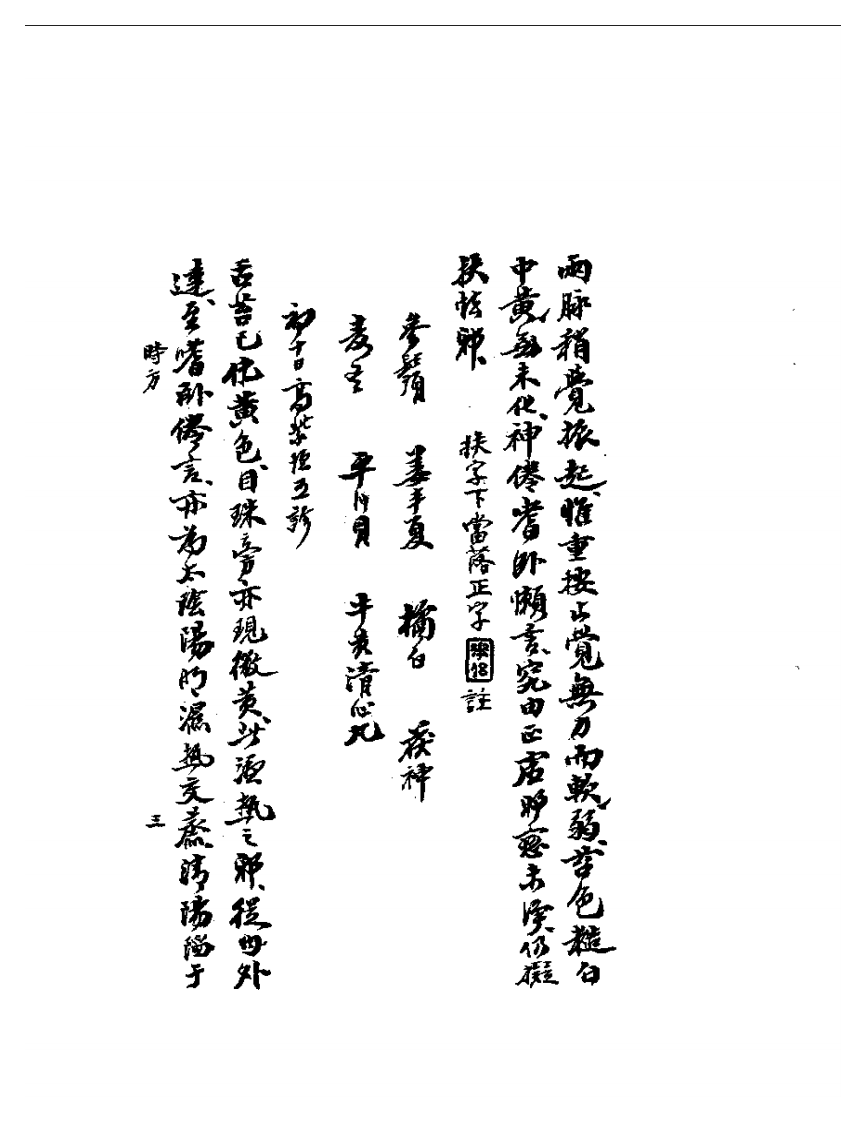 兩脉稍覺振起、惟重按亦覺無力而軟弱、苔色糙白
中黃、尚未化、神倦嗜卧懶言、究由正虛邪戀未净、仍擬
扶怯邪、
扶字下當落正字 註
參鬚 姜半夏 橘白 茯神
麦冬 平川貝 牛黄清心丸
初十日高紫垣五診
舌苔已化黃色、目珠旁亦現微黄、此濕熱之邪、從内外
達、至嗜卧倦言、亦为太陰陽明濕熱交蒸、清陽蹈于
時方
王